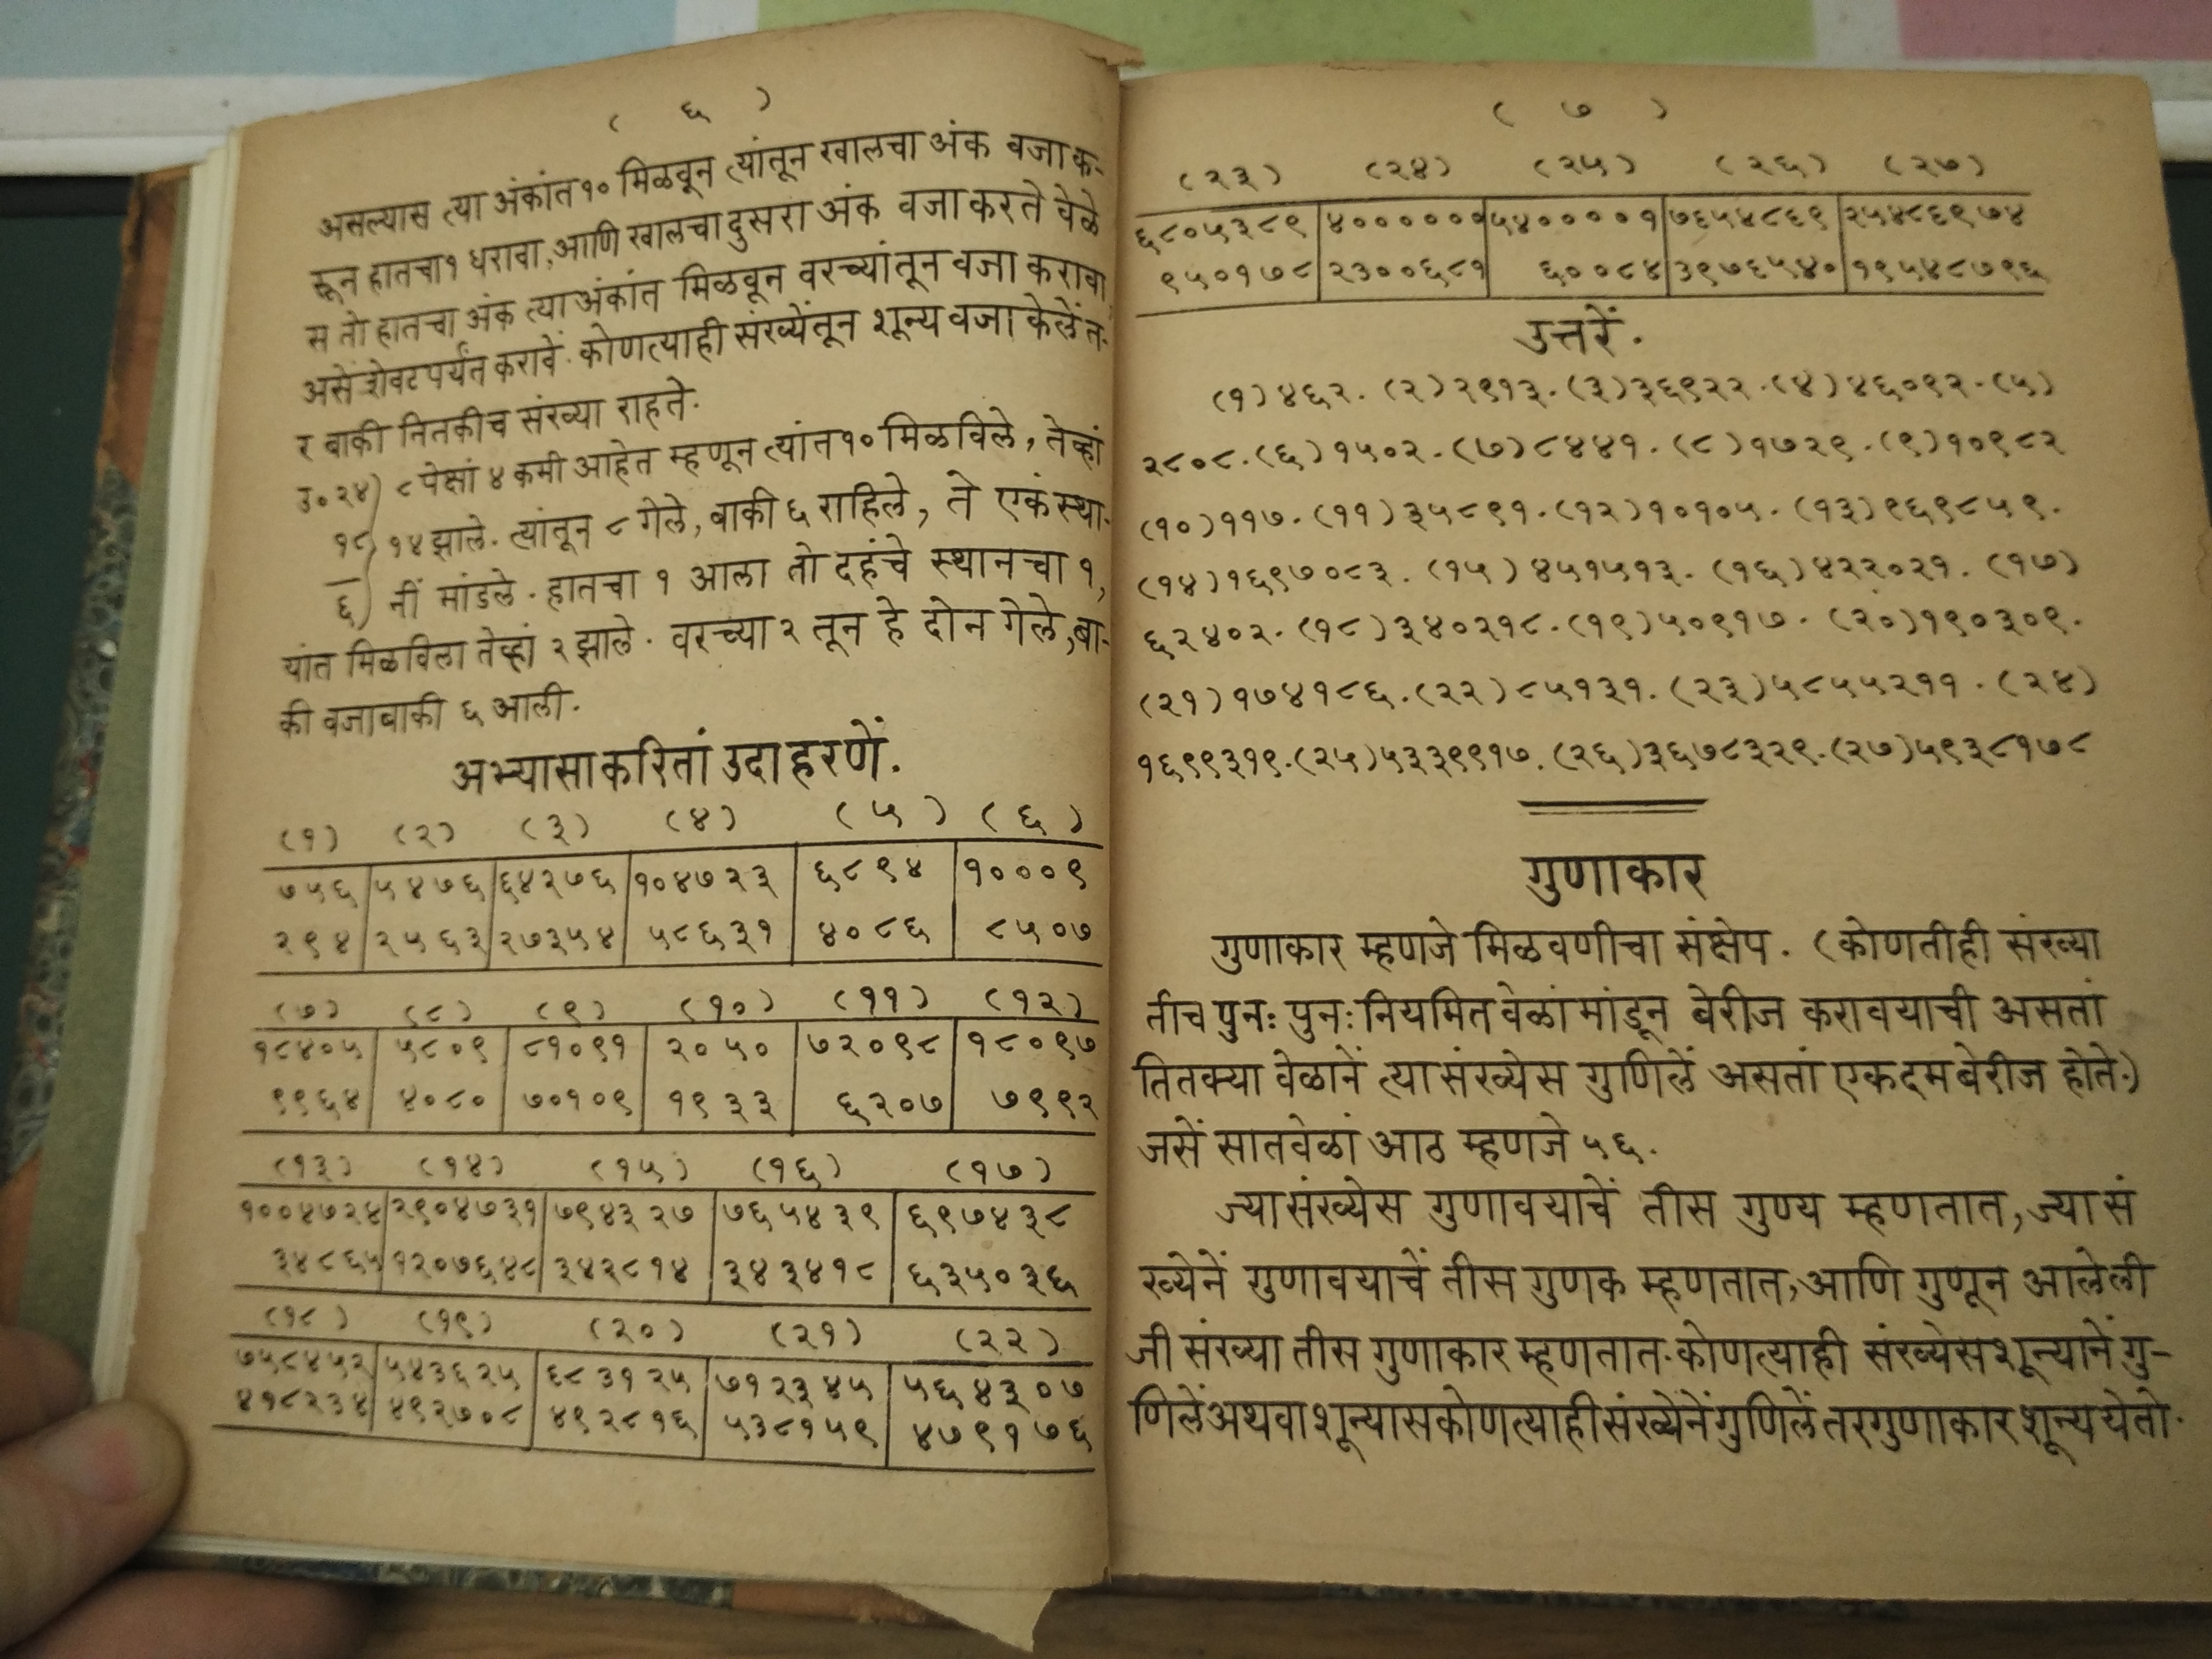 ( ६ )
असल्यास त्या अंकांत १० मिळवून त्यांतून खालचा अंक वजा क-
रून हातचा १ धरावा, आणि खालचा दुसरा अंक वजा करते वेळे
स तो हातचा अंक त्या अंकांत मिळवून वरच्यांतून वजा करावा
असें शेवट पर्यंत करावें. कोणत्याही संख्येंतून शून्य वजा केलें त-
र बाकी तितकीच संख्या राहते.
उ० २४) ८ पेक्षां ४ कमी आहेत म्हणून त्यांत १० मिळविले, तेव्हां
१८) १४ झाले. त्यांतून ८ गेले, बाकी ६ राहिले, ते एकं स्था-
६) नीं मांडले. हातचा १ आला तो दहंचे स्थानचा १,
यांत मिळविला तेव्हां २ झाले. वरच्या २ तून हे दोन गेले, बा-
की वजाबाकी ६ आली.
अभ्यासाकरितां उदाहरणें.
(१) (२) (३) (४) (५) (६)
७५६ ५४७६ ६४२७६ १०४७२३ ६८९४ १०००९
२९४ २५६३ २७३५४ ५८६३१ ४०८६ ८५०७
(७) (८) (९) (१०) (११) (१२)
१८४०५ ५८०९ ८१०९१ २०५० ७२०९८ १८०९७
९९६४ ४०८० ७०१०९ १९३३ ६२०७ ७९९२
(१३) (१४) (१५) (१६) (१७)
१००४७२४ २९०४७३१ ७९४३२७ ७६५४३९ ६९७४३८
३४८६५ १२०७६४८ ३४२८१४ ३४३४१८ ६३५०३६
(१८) (१९) (२०) (२१) (२२)
७५८४५२ ५४३६२५ ६८३१२५ ७१२३४५ ५६४३०७
४१८२३४ ४९२७०८ ४९२८१६ ५३८१५९ ४७९१७६
( ७ )
(२३) (२४) (२५) (२६) (२७)
६८०५३८९ ४०००००० ५४००००१ ७६५४८६९ २५४८६९७४
९५०१७८ २३००६८१ ६००८४ ३९७६५४० १९५४८७९६
उत्तरें.
(१) ४६२. (२) २९१३. (३) ३६९२२. (४) ४६०९२. (५)
२८०८. (६) १५०२. (७) ८४४१. (८) १७२९. (९) १०९८२
(१०) ११७. (११) ३५८९१. (१२) १०१०५. (१३) ९६९८५९.
(१४) १६९७०८३. (१५) ४५१५१३. (१६) ४२२०२१. (१७)
६२४०२. (१८) ३४०२१८. (१९) ५०९१७. (२०) १९०३०९.
(२१) १७४१८६. (२२) ८५१३१. (२३) ५८५५२११. (२४)
१६९९३१९. (२५) ५३३९९१७. (२६) ३६७८३२९. (२७) ५९३८१७८
गुणाकार
गुणाकार म्हणजे मिळवणीचा संक्षेप. (कोणतीही संख्या
तीच पुनः पुनः नियमित वेळां मांडून बेरीज करावयाची असतां
तितक्या वेळानें त्या संख्येस गुणिलें असतां एकदम बेरीज होते.)
जसें सातवेळां आठ म्हणजे ५६.
ज्या संख्येस गुणावयाचें तीस गुण्य म्हणतात, ज्या सं
ख्येनें गुणावयाचें तीस गुणक म्हणतात, आणि गुणून आलेली
जी संख्या तीस गुणाकार म्हणतात. कोणत्याही संख्येस शून्यानें गु-
णिलें अथवा शून्यास कोणत्याही संख्येनें गुणिलें तर गुणाकार शून्य येतो.